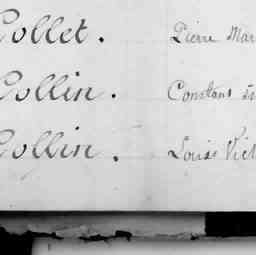 Collet. Pierre Mar
Collin. Constans
Collin. Louis Vict